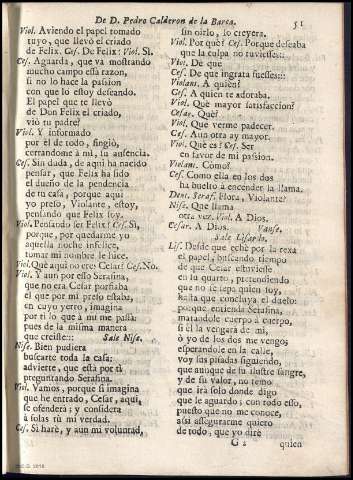 De D. Pedro Calderon de la Barca.
51
Viol. Aviendo el papel tomado
tuyo, que llevò el criado
de Felix. Ces. De Felix? Viol. Sì.
Ces. Aguarda, que va mostrando
mucho campo essa razon,
si no lo hace la passion
con que lo estoy deseando.
El papel que te llevò
de Don Felix el criado,
viò tu padre?
Viol. Y informado
por èl de todo, fingiò,
cerrandome à mì, su ausencia.
Ces. Sin duda, de aqui ha nacido
pensar, que Felix ha sido
el dueño de la pendencia
de tu casa, porque aqui
yo preso, Violante, estoy,
pensando que Felix soy.
Viol. Pensando ser Felix? Ces. Sì,
porque, por quedarme yo
aquella noche infelice,
tomar mi nombre le hice.
Viol. Què aqui no eres Cesar? Ces. No.
Viol. Y aun por esso Serafina,
que no era Cesar porfiaba
el que por mi preso estaba,
en cuyo yerro, imagina
por tì lo que à mì me passa:
pues de la misma manera
que creiste:: Sale Nise.
Nise. Bien pudiera
buscarte toda la casa;
advierte, que està por tì
preguntando Serafina.
Viol. Vamos, porque si imagina
que he entrado, Cesar, aqui,
se ofenderà; y considera
à solas tù mi verdad.
Ces. Sì harè, y aun mi voluntad,
sin oirlo, lo creyera.
Viol. Por què? Ces. Porque deseaba
que la culpa no tuviesses::
Viol. De que
Ces. De que ingrata fuesses::
Violant. A quien?
Ces. A quien te adoraba.
Viol. Què mayor satisfaccion?
Cesar. Què?
Viol. Què verme padecer.
Ces. Aun otra ay mayor.
Viol. Què es? Ces. Ser
en favor de mi passion.
Violant. Còmo?
Ces. Como ella en los dos
ha buelto à encender la llama.
Dent. Seraf. Flora, Violante?
Nise. Que llama
otra vez. Viol. A Dios.
Cesar. A Dios. Vanse.
Sale Lisardo.
Lis. Desde que echè por la rexa
el papel, buscando tiempo
de que Cesar estuviesse
en su quarto, pretendiendo
que no se sepa quien soy,
hasta que concluya el duelo:
porque entienda Serafina,
matandole cuerpo à cuerpo,
si èl la vengarà de mì,
ò yo de los dos me vengo;
esperandole en la calle,
voy sus pisadas siguiendo,
que aunque de su ilustre sangre,
y de su valor, no temo
que irà solo donde digo
que le aguardo; con todo esso,
puesto que no me conoce,
assi assegurarme quiero
de todo, que yo dirè
G 2 quien